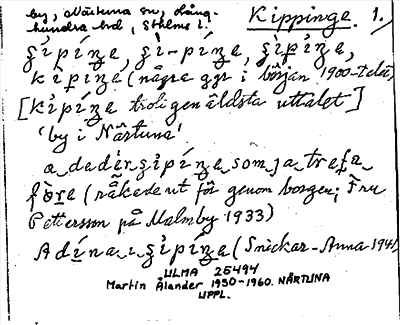 by, Närtuna sn, Lång-
hundra hd, Sthlms l.
Kippinge 1.
ʂípíŋe, ʂi-píŋe, ʂípíŋe,
kípiŋe (några ggr i början 1900-talet)
[kípíŋe troligen äldsta uttalet]
'by i Närtuna'
a dedǽrʂipíŋe som ja trefa
före (råkade ut för genom borgen; Fru
Pettersson på Malmby 1933)
Adína i ʂipíŋe (Snickar-Anna 1941)
ULMA 25494
Martin Ålander 1930-1960. NÄRTUNA
UPPL.